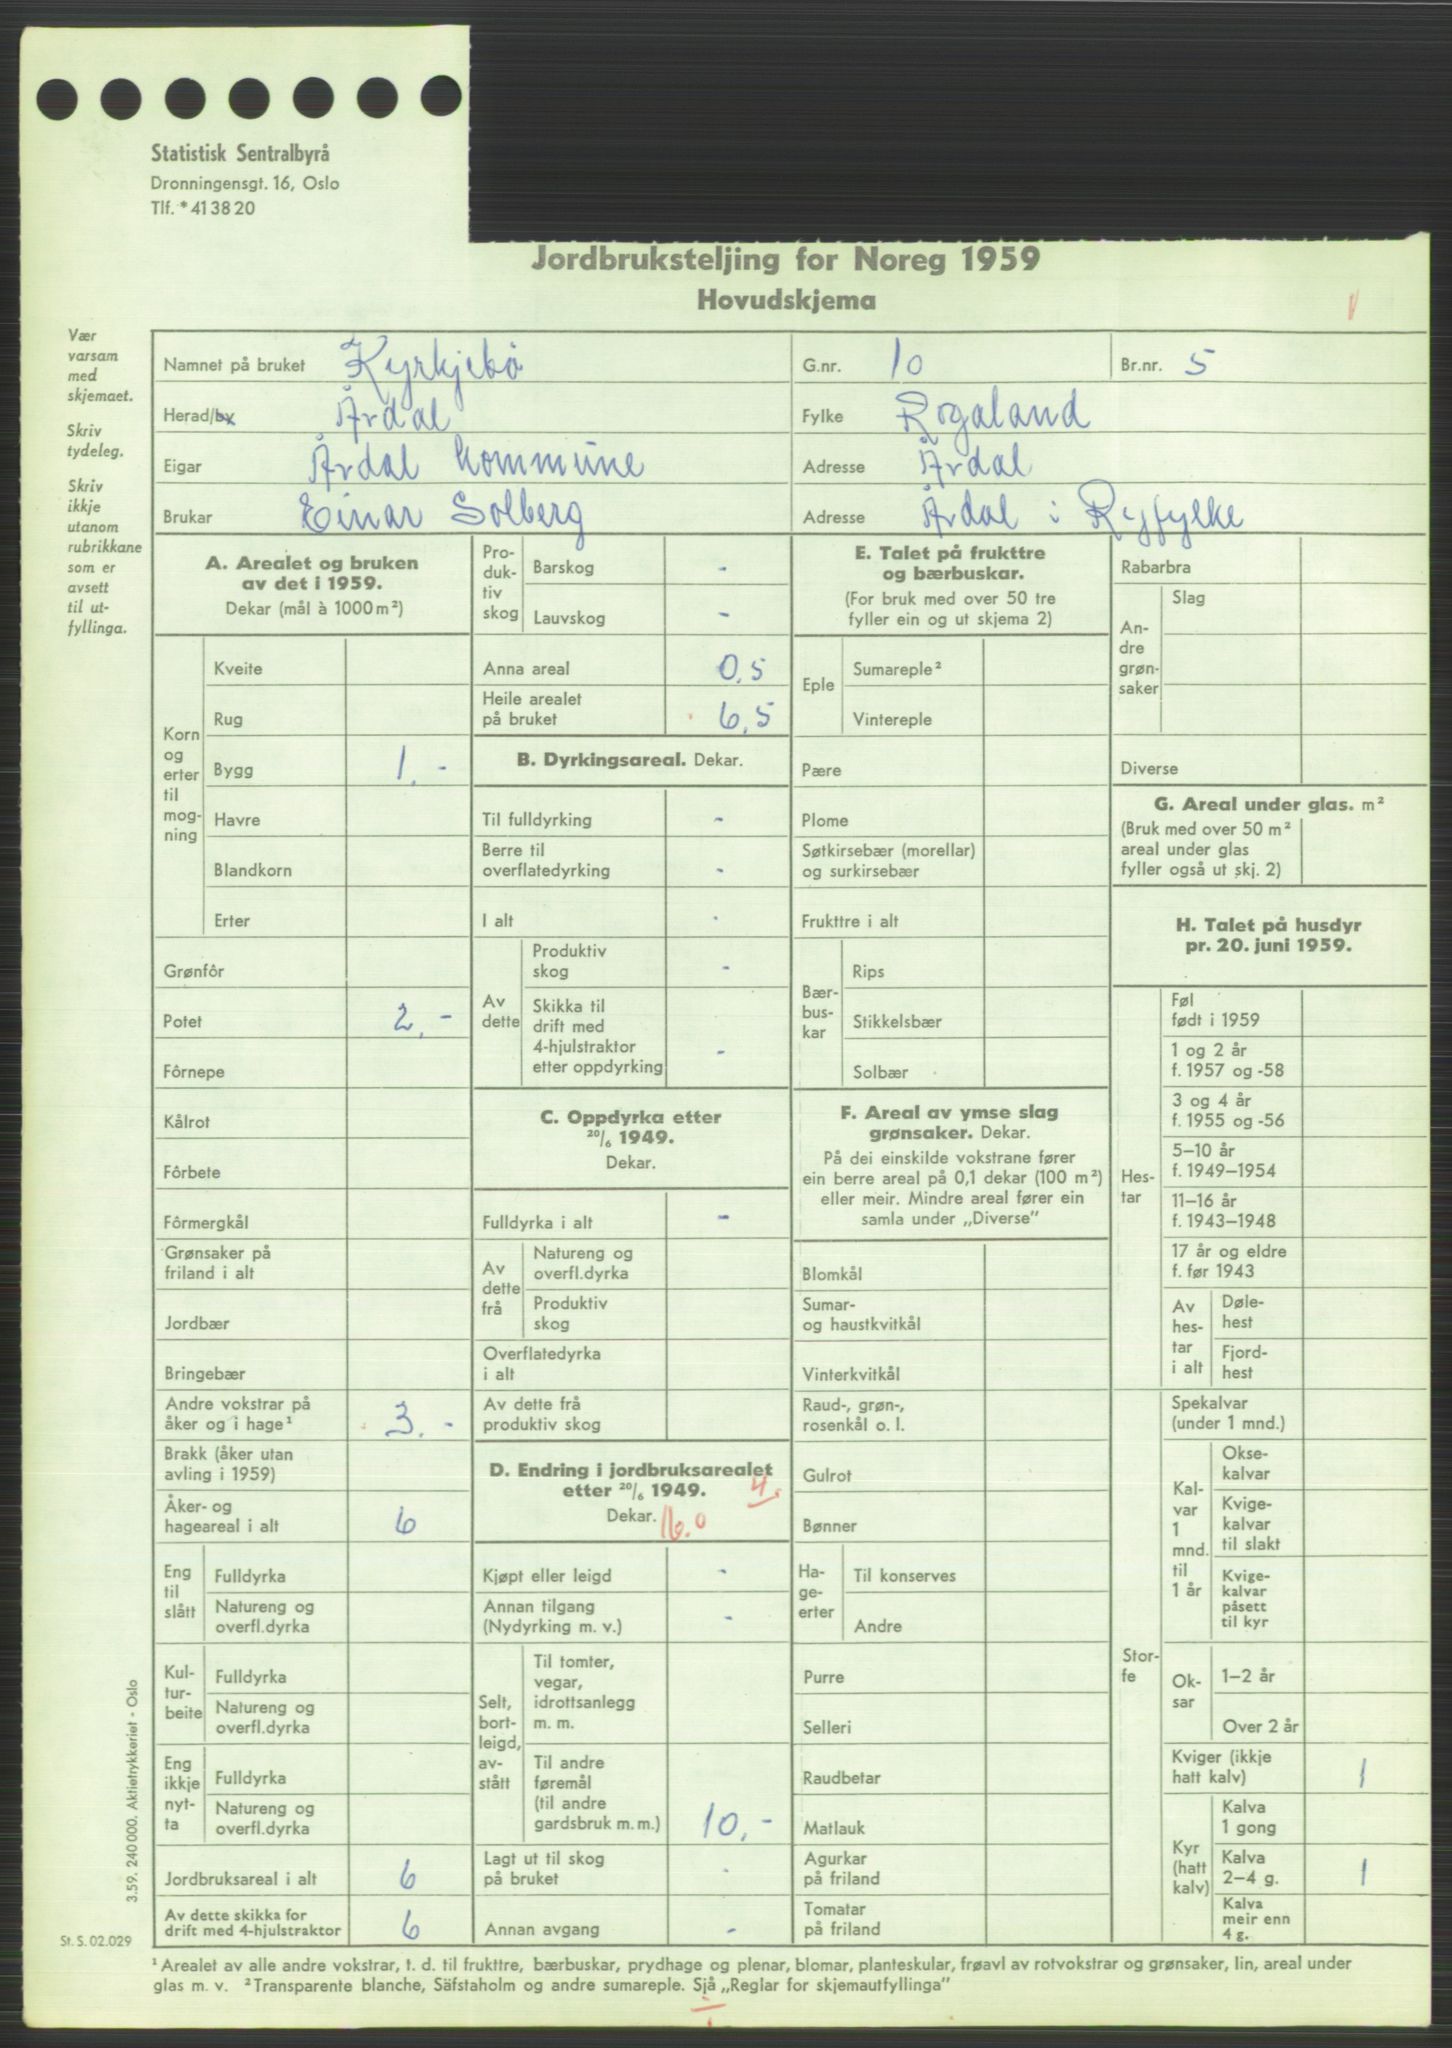 Statistisk Sentralbyrå
Dronningensgt. 16, Oslo
Tlf. * 41 38 20
Jordbruksteljing for Noreg 1959
Hovudskjema
Vær
varsam
med
skjemaet.
Skriv
tydeleg.
Skriv
ikkje
utanom
rubrikkane
som er
avsett
til ut-
fyllinga.
Namnet på bruket Kyrkjebö G.nr. 10 Br.nr. 5
Herad/by Årdal Fylke Rogaland
Eigar Årdal kommune Adresse Årdal
Brukar Einar Solberg Adresse Årdal i Ryfylke
A. Arealet og bruken
av det i 1959.
Dekar (mål à 1000 m²)
Korn
og
erter
til
mog-
ning
Kveite
Rug
Bygg 1.-
Havre
Blandkorn
Erter
Grønfôr
Potet 2.-
Fôrnepe
Kålrot
Fôrbete
Fôrmergkål
Grønsaker på
friland i alt
Jordbær
Bringebær
Andre vokstrar på
åker og i hage¹ 3.-
Brakk (åker utan
avling i 1959)
Åker- og
hageareal i alt 6
Eng
til
slått
Fulldyrka
Natureng og
overfl.dyrka
Kul-
tur-
beite
Fulldyrka
Natureng og
overfl.dyrka
Eng
ikkje
nyt-
ta
Fulldyrka
Natureng og
overfl.dyrka
Jordbruksareal i alt 6
Av dette skikka for
drift med 4-hjulstraktor 6
Pro-
duk-
tiv
skog
Barskog -
Lauvskog -
Anna areal 0,5
Heile arealet
på bruket 6,5
B. Dyrkingsareal. Dekar.
Til fulldyrking -
Berre til
overflatedyrking -
I alt -
Av
dette
Produktiv
skog -
Skikka til
drift med
4-hjulstraktor
etter oppdyrking -
C. Oppdyrka etter
20/6 1949.
Dekar.
Fulldyrka i alt -
Av
dette
frå
Natureng og
overfl.dyrka
Produktiv
skog
Overflatedyrka
i alt
Av dette frå
produktiv skog
D. Endring i jordbruksarealet
etter 20/6 1949. 4.
Dekar. 16.0
Kjøpt eller leigd -
Annan tilgang
(Nydyrking m. v.) -
Selt,
bort-
leigd,
av-
stått
Til tomter,
vegar,
idrottsanlegg
m. m.
Til andre
føremål
(til andre
gardsbruk m. m.) 10.-
Lagt ut til skog
på bruket -
Annan avgang -
E. Talet på frukttre
og bærbuskar.
(For bruk med over 50 tre
fyller ein og ut skjema 2)
Eple
Sumareple²
Vintereple
Pære
Plome
Søtkirsebær (morellar)
og surkirsebær
Frukttre i alt
Bær-
bus-
kar
Rips
Stikkelsbær
Solbær
F. Areal av ymse slag
grønsaker. Dekar.
På dei einskilde vokstrane fører
ein berre areal på 0,1 dekar (100 m²)
eller meir. Mindre areal fører ein
samla under „Diverse”
Blomkål
Sumar-
og haustkvitkål
Vinterkvitkål
Raud-, grøn-,
rosenkål o. l.
Gulrot
Bønner
Ha-
ge-
erter
Til konserves
Andre
Purre
Selleri
Raudbetar
Matlauk
Agurkar
på friland
Tomatar
på friland
Rabarbra
An-
dre
grøn-
saker
Slag
Diverse
G. Areal under glas. m²
(Bruk med over 50 m²
areal under glas
fyller også ut skj. 2)
H. Talet på husdyr
pr. 20. juni 1959.
Hes-
tar
Føl
født i 1959
1 og 2 år
f. 1957 og -58
3 og 4 år
f. 1955 og -56
5–10 år
f. 1949–1954
11–16 år
f. 1943–1948
17 år og eldre
f. før 1943
Av
hes-
tar
i alt
Døle-
hest
Fjord-
hest
Stor-
fe
Spekalvar
(under 1 mnd.)
Kal-
var
1
mnd.
til
1 år
Okse-
kalvar
Kvige-
kalvar
til slakt
Kvige-
kalvar
påsett
til kyr
Ok-
sar
1–2 år
Over 2 år
Kviger (ikkje
hatt kalv) 1
Kyr
(hatt
kalv)
Kalva
1 gong
Kalva
2–4 g. 1
Kalva
meir enn
4 g.
3.59. 240 000. Aktietrykkeriet - Oslo
St. S. 02.029
¹ Arealet av alle andre vokstrar, t. d. til frukttre, bærbuskar, prydhage og plenar, blomar, planteskular, frøavl av rotvokstrar og grønsaker, lin, areal under
glas m. v. ² Transparente blanche, Säfstaholm og andre sumareple. Sjå „Reglar for skjemautfyllinga”